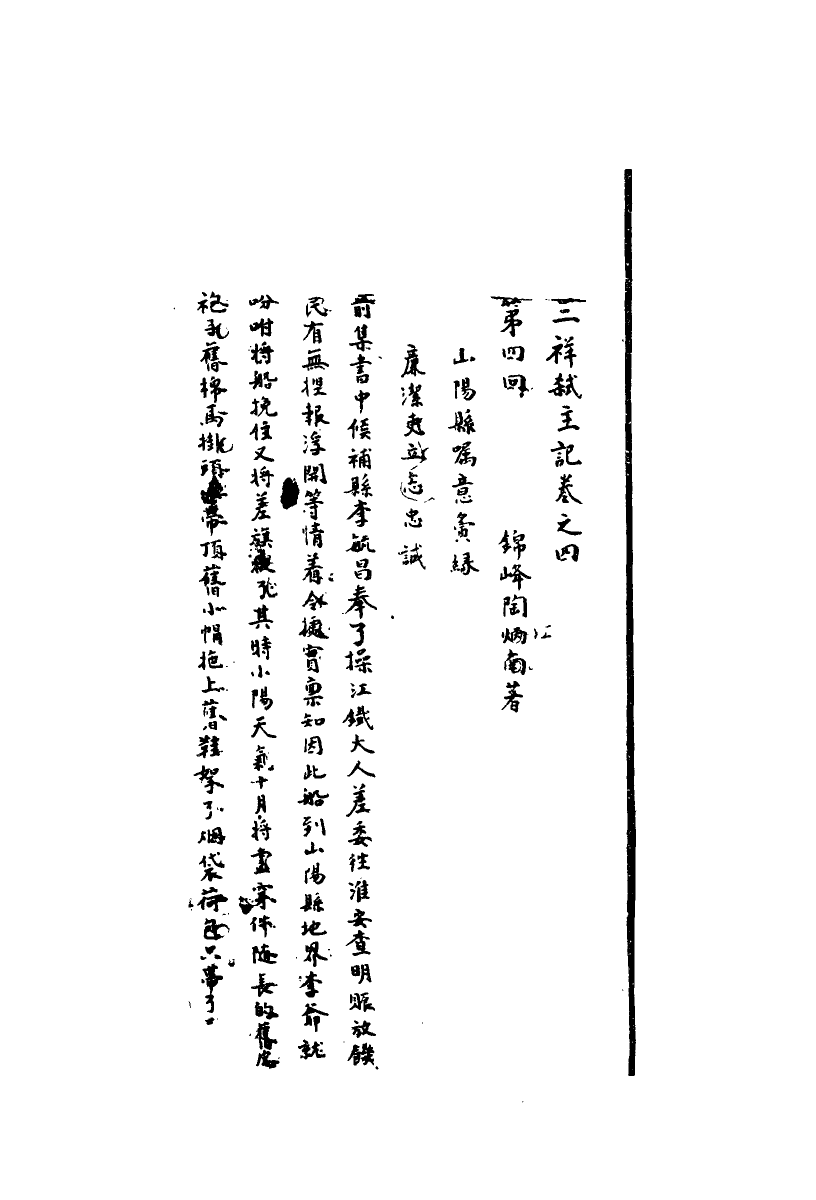 三祥弑主記卷之四
第四回 錦峰陶炳南著
江
山陽縣嘱意夤緣
廉潔吏立志忠誠
前集書中候補縣李毓昌奉了操江鐵大人差委往淮安查明賑放饑
民有無捏報浮開等情着令據實稟知因此船到山陽縣地界李爺就
吩咐将船挽住又将差旗 其時小陽天氣十月将盡穿件随長的舊
袍 舊棉馬掛頭 帶頂舊小帽拖上舊鞋拏了烟袋荷包只帶了一